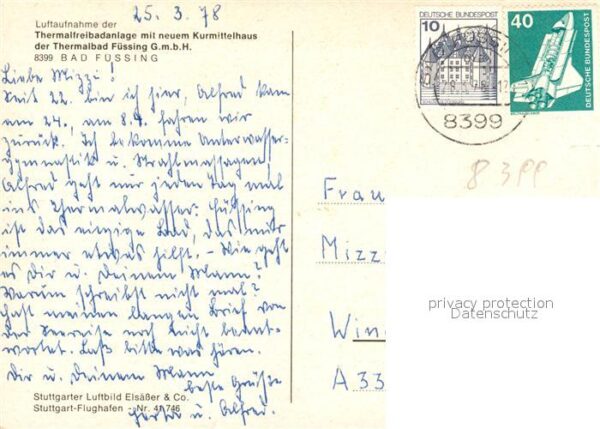 25. 3. 78
Luftaufnahme der
Thermalfreibadanlage mit neuem Kurmittelhaus
der Thermalbad Füssing G.m.b.H.
8399 BAD FÜSSING
Liebe Mizzi!
Seit 22. bin ich hier, Alfred kam
am 24., am 8.4. fahren wir
zurück. Ich bekomme Unterwasser-
gymnastik u. Strahlmassagen,
Alfred geht nur jeden Tag mal
ins Thermalwasser. Füssing
ist das einzige Bad, das mir
immer etwas hilft. - Wie geht
es Dir u. Deinem Mann?
Warum schreibst nicht mal?
Hast meinen langen Brief von
der noch nicht beant-
wortet. Laß bitte was hören.
Dir u. Deinem Mann
beste Grüße
u. Alfred.
Stuttgarter Luftbild Elsäßer & Co.
Stuttgart-Flughafen - Nr. 41 746
10 DEUTSCHE BUNDESPOST
40 DEUTSCHE BUNDESPOST
8399
8399
Frau
Mizz
Win
A 33
privacy protection
Datenschutz